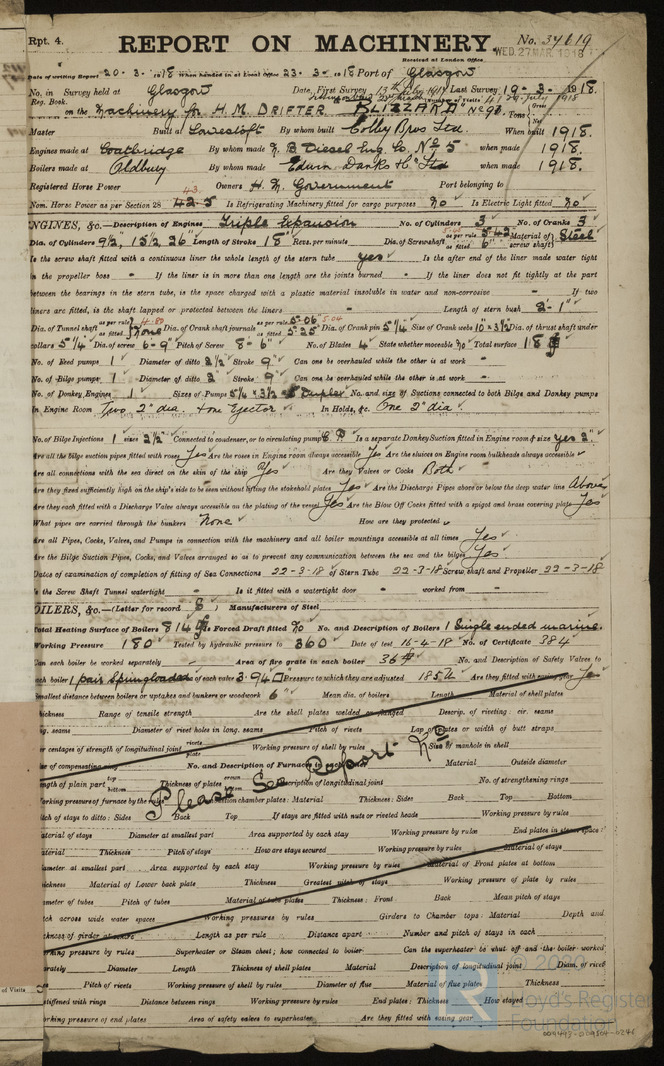 Rpt. 4.
REPORT ON MACHINERY
No. 37619
Received at London Office
WED. 27 MAR. 1918
Date of writing Report 20-3-1918 When handed in at Local Office 23-3-1918 Port of Glasgow
No. in Survey held at Glasgow Date, First Survey Last Survey 19-3-1918
Reg. Book.
on the Machinery for H.M. DRIFTER BLIZZARD Tons Gross Net
Master Built at Lowestoft By whom built Colby Bros Ltd. When built 1918.
Engines made at Coatbridge By whom made N.B. Diesel Eng. Co. No 5 when made 1918.
Boilers made at Oldbury By whom made Edwin Danks & Co Ltd when made 1918.
Registered Horse Power Owners H.M. Government Port belonging to
Nom. Horse Power as per Section 28 43 42.5 Is Refrigerating Machinery fitted for cargo purposes No Is Electric Light fitted No
ENGINES, &c.—Description of Engines Triple Expansion No. of Cylinders 3 No. of Cranks 3
Dia. of Cylinders 9½, 15½, 26" Length of Stroke 18" Revs. per minute Dia. of Screw shaft as per rule as fitted 6" Material of screw shaft Steel
Is the screw shaft fitted with a continuous liner the whole length of the stern tube yes Is the after end of the liner made water tight
in the propeller boss - If the liner is in more than one length are the joints burned - If the liner does not fit tightly at the part
between the bearings in the stern tube, is the space charged with a plastic material insoluble in water and non-corrosive - If two
liners are fitted, is the shaft lapped or protected between the liners - Length of stern bush 2'-1"
Dia. of Tunnel shaft as per rule as fitted None Dia. of Crank shaft journals as per rule 5.06 5.04 as fitted 5.25 Dia. of Crank pin 5¼ Size of Crank webs 10 × 3½ Dia. of thrust shaft under
collars 5¼ Dia. of screw 6-9 Pitch of Screw 8-6 No. of Blades 4 State whether moveable No Total surface 18
No. of Feed pumps 1 Diameter of ditto 2½ Stroke 9" Can one be overhauled while the other is at work -
No. of Bilge pumps 1 Diameter of ditto 2 Stroke 9" Can one be overhauled while the other is at work -
No. of Donkey Engines 1 Sizes of Pumps 5¼ × 3½ × 5 Duplex No. and size of Suctions connected to both Bilge and Donkey pumps
In Engine Room Two 2" dia + one Ejector In Holds, &c. One 2" dia
No. of Bilge Injections 1 sizes 2½" Connected to condenser, or to circulating pump C.P. Is a separate Donkey Suction fitted in Engine room & size yes 2"
Are all the bilge suction pipes fitted with roses Yes Are the roses in Engine room always accessible Yes Are the sluices on Engine room bulkheads always accessible
Are all connections with the sea direct on the skin of the ship Yes Are they Valves or Cocks Both
Are they fixed sufficiently high on the ship's side to be seen without lifting the stokehold plates Yes Are the Discharge Pipes above or below the deep water line Above
Are they each fitted with a Discharge Valve always accessible on the plating of the vessel Yes Are the Blow Off Cocks fitted with a spigot and brass covering plate Yes
What pipes are carried through the bunkers None How are they protected
Are all Pipes, Cocks, Valves, and Pumps in connection with the machinery and all boiler mountings accessible at all times Yes
Are the Bilge Suction Pipes, Cocks, and Valves arranged so as to prevent any communication between the sea and the bilges Yes
Dates of examination of completion of fitting of Sea Connections 22-3-18 of Stern Tube 22-3-18 Screw shaft and Propeller 22-3-18
Is the Screw Shaft Tunnel watertight - Is it fitted with a watertight door - worked from -
BOILERS, &c.—(Letter for record S) Manufacturers of Steel
Total Heating Surface of Boilers 814 Is Forced Draft fitted No No. and Description of Boilers 1 Single ended marine.
Working Pressure 180 Tested by hydraulic pressure to 360 Date of test 16-4-18 No. of Certificate 384
Can each boiler be worked separately - Area of fire grate in each boiler 36 No. and Description of Safety Valves to
each boiler 1 pair Spring loaded Area of each valve 3.94 Pressure to which they are adjusted 185 lb Are they fitted with easing gear Yes
Smallest distance between boilers or uptakes and bunkers or woodwork 6" Mean dia. of boilers Length Material of shell plates
Thickness Range of tensile strength Are the shell plates welded or flanged Descrip. of riveting: cir. seams
long. seams Diameter of rivet holes in long. seams Pitch of rivets Lap of plates or width of butt straps
Per centages of strength of longitudinal joint rivets plate Working pressure of shell by rules Size of manhole in shell
Size of compensating ring No. and Description of Furnaces in each boiler Material Outside diameter
Please See Report No
Length of plain part top bottom Thickness of plates crown bottom Description of longitudinal joint No. of strengthening rings
Working pressure of furnace by the rules Combustion chamber plates: Material Thickness: Sides Back Top Bottom
Pitch of stays to ditto: Sides Back Top If stays are fitted with nuts or riveted heads Working pressure by rules
Material of stays Diameter at smallest part Area supported by each stay Working pressure by rules End plates in steam space:
Material Thickness Pitch of stays How are stays secured Working pressure by rules Material of stays
Diameter at smallest part Area supported by each stay Working pressure by rules Material of Front plates at bottom
Thickness Material of Lower back plate Thickness Greatest pitch of stays Working pressure of plate by rules
Diameter of tubes Pitch of tubes Material of tube plates Thickness: Front Back Mean pitch of stays
Pitch across wide water spaces Working pressures by rules Girders to Chamber tops: Material Depth and
thickness of girder at centre Length as per rule Distance apart Number and pitch of stays in each
Working pressure by rules Superheater or Steam chest; how connected to boiler Can the superheater be shut off and the boiler worked
separately Diameter Length Thickness of shell plates Material Description of longitudinal joint Diam. of rivet
Pitch of rivets Working pressure of shell by rules Diameter of flue Material of flue plates Thickness
If stiffened with rings Distance between rings Working pressure by rules End plates: Thickness How stayed
Working pressure of end plates Area of safety valves to superheater Are they fitted with easing gear
of Visits
© 2020
Lloyd's Register
Foundation
004493-004504-0246